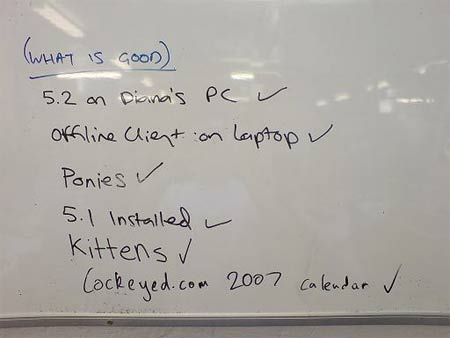 (WHAT IS GOOD)
5.2 on Diana's PC ✓
Offline Client on Laptop ✓
Ponies ✓
5.1 Installed ✓
Kittens ✓
Cockeyed.com 2007 calendar ✓